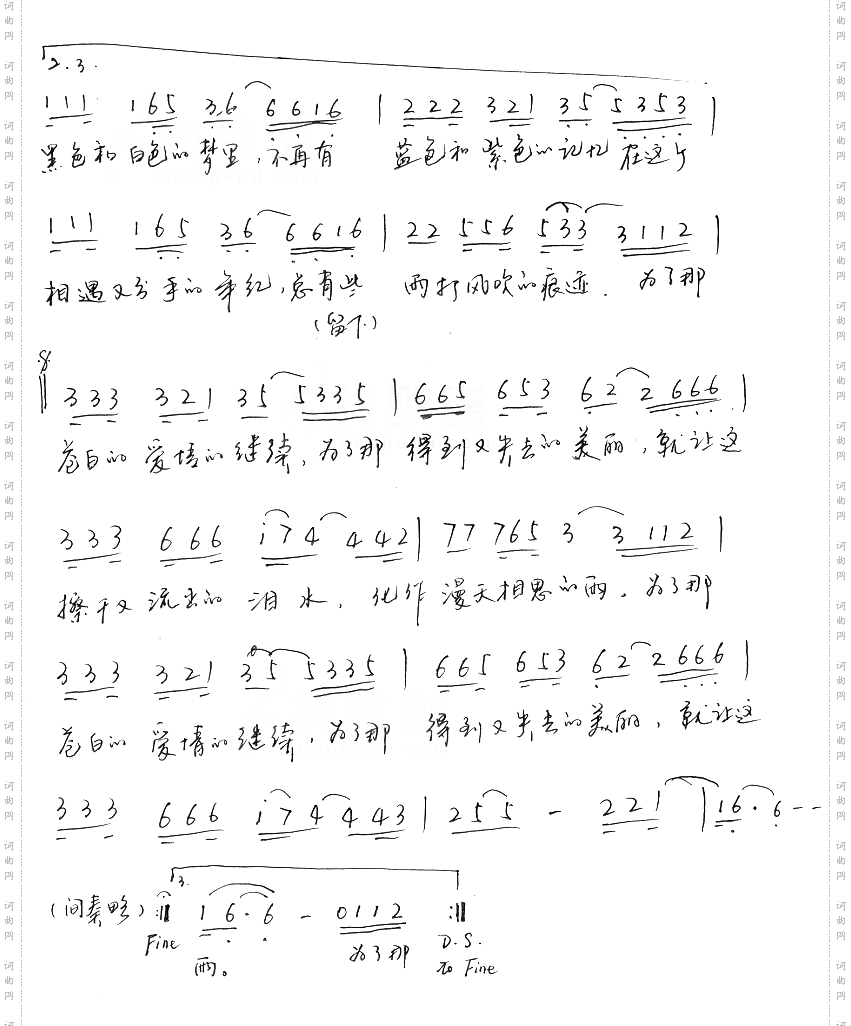 2.3.
111 165 36 6616 | 222 321 35 5353 |
黑色和 白色的 梦里,不再有 蓝色和 紫色的 记忆 在这片
111 165 36 6616 | 22 556 533 3112 |
相遇又分手的 年纪,总有些 雨打风吹的痕迹. 为了那
(留下)
333 321 35 5335 | 665 653 62 2666 |
苍白的 爱情的 继续,为了那 得到又失去的 美丽,就让这
333 666 i74 442 | 77 765 3 3112 |
擦干又 流出的 泪水,化作 漫天相思的雨。为了那
333 321 35 5335 | 665 653 62 2666 |
苍白的 爱情的 继续,为了那 得到又失去的 美丽,就让这
333 666 i74 443 | 255 - 221 | 16· 6 - -
13.
(间奏略) :‖ 16·6 - 0112 :‖
Fine 雨。 为了那 D.S.
to Fine
词曲网